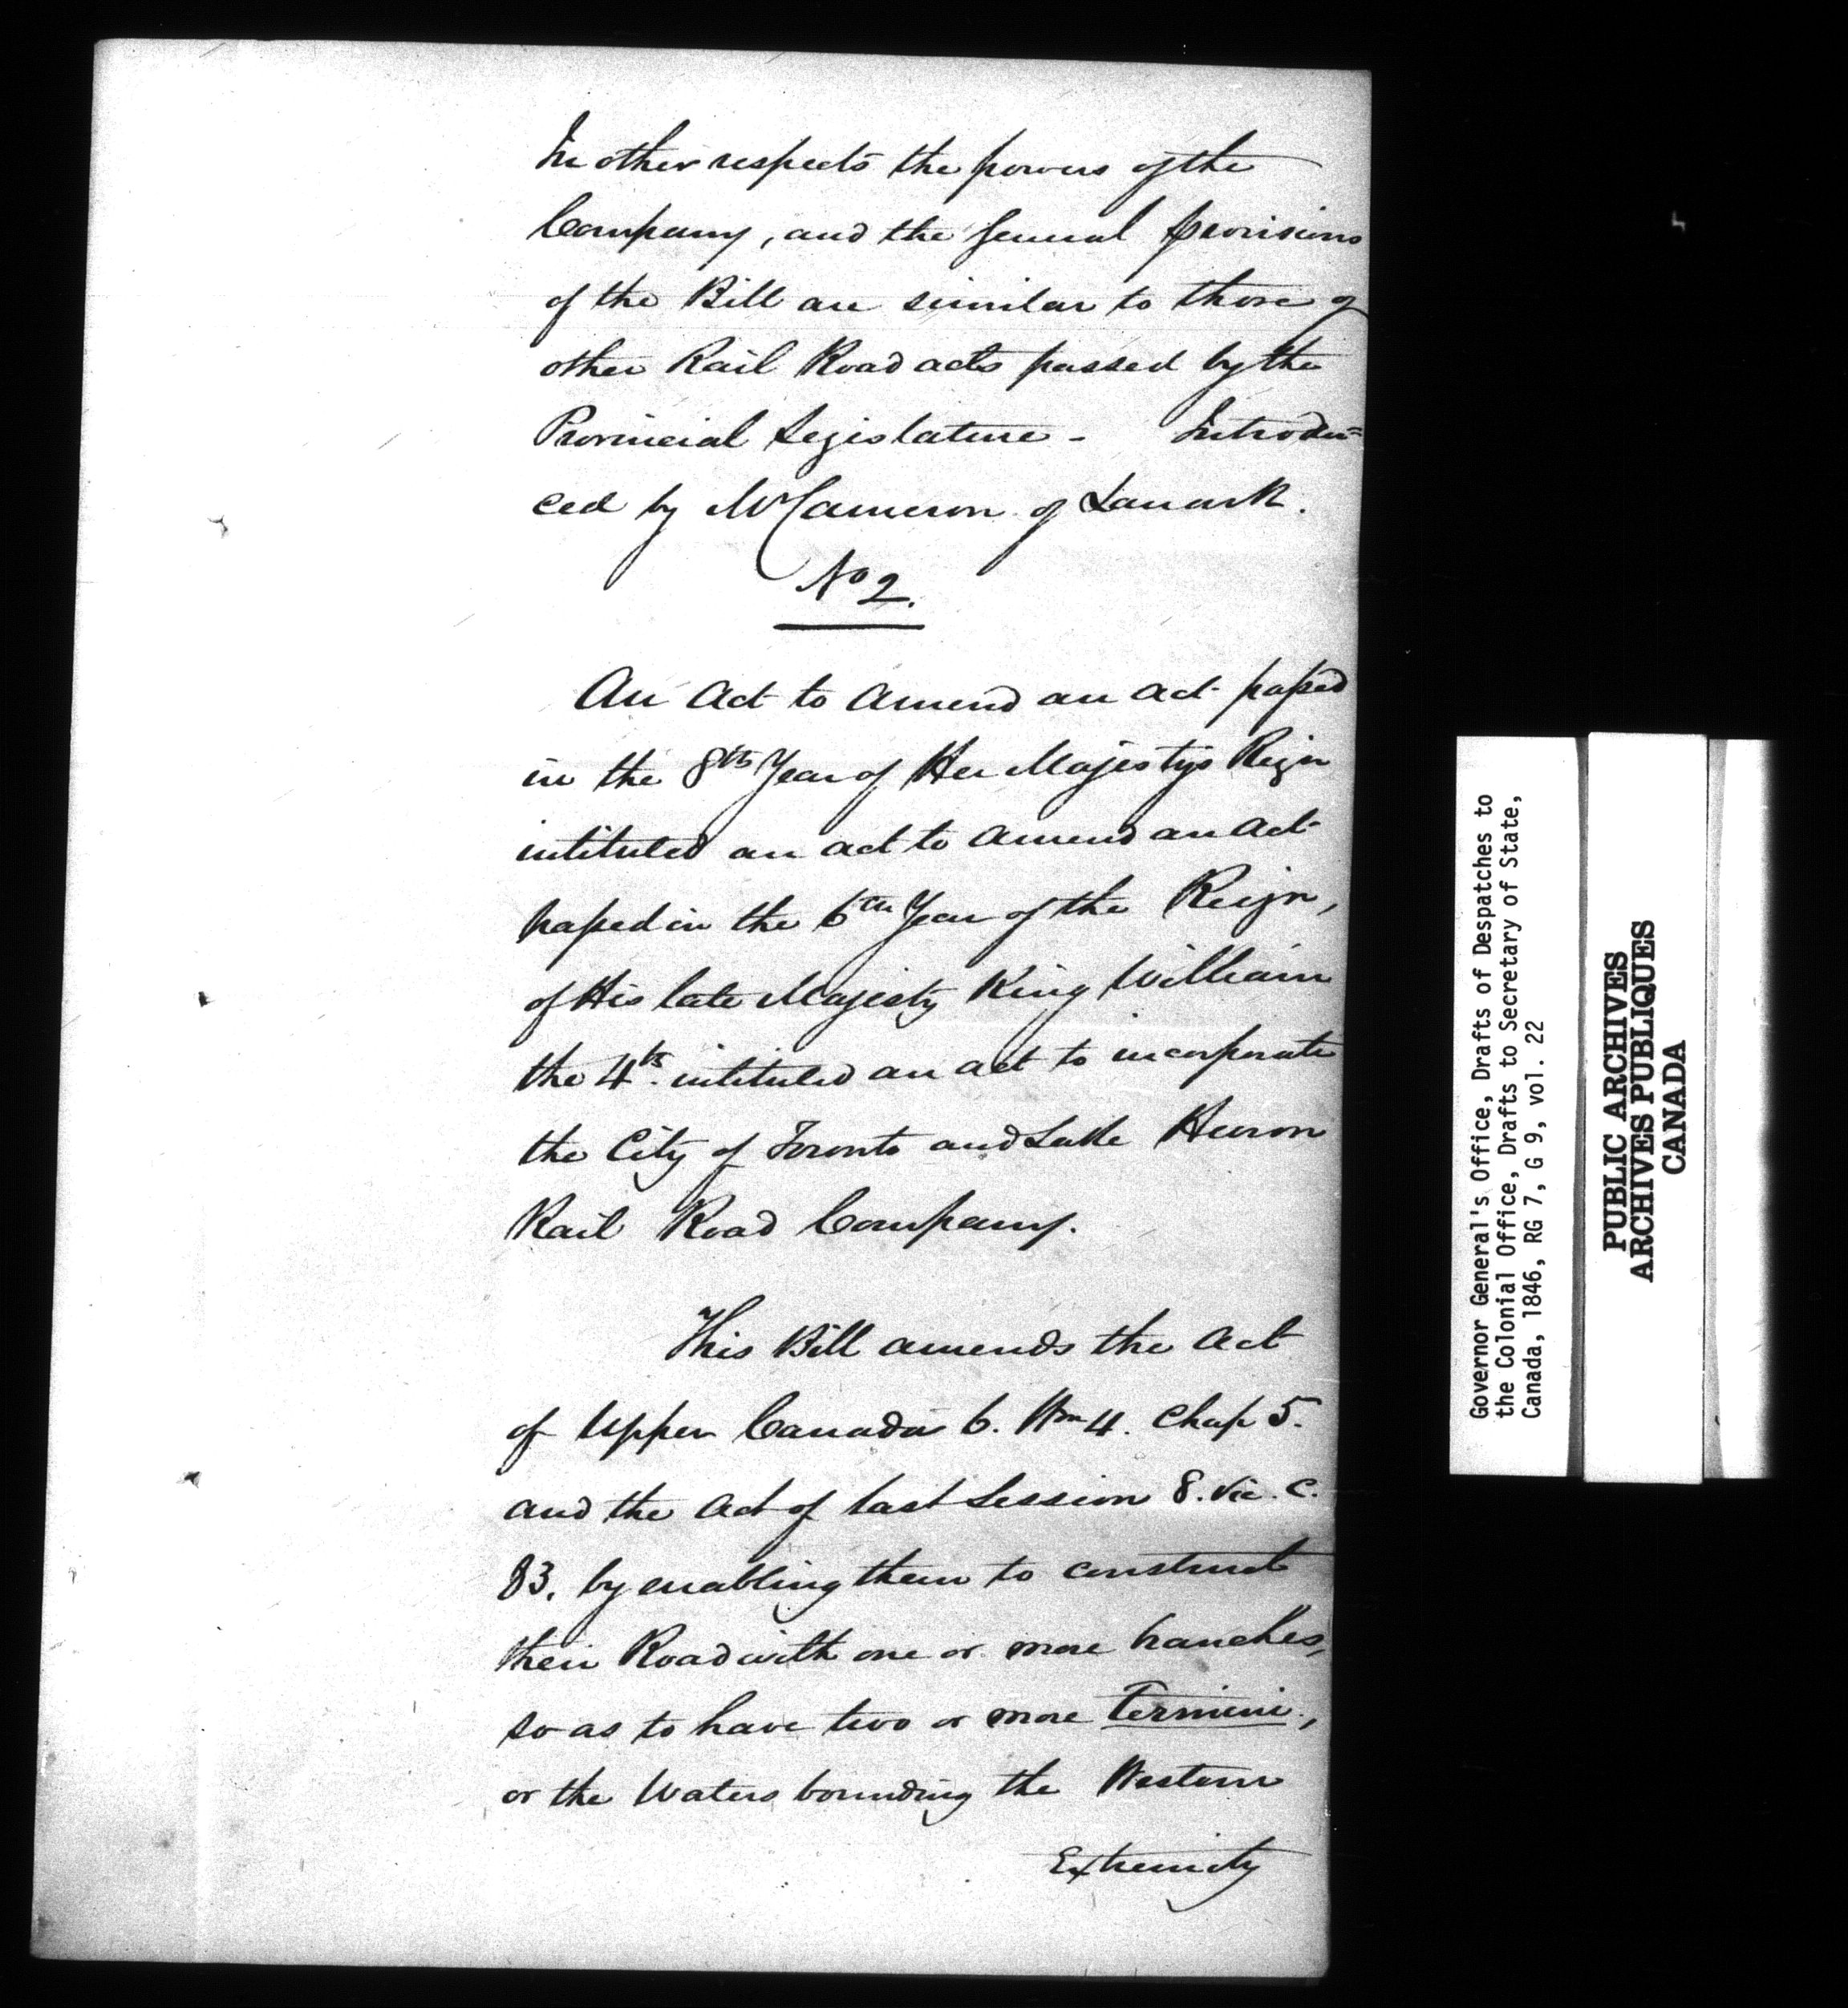 In other respects the powers of the
Company, and the general provisions
of the Bill are similar to those of
other Rail Road acts passed by the
Provincial Legislature - Introdu=
ced by Mr Cameron of Lanark.
No 2.
An Act to Amend an Act passed
in the 8th Year of Her Majestys Reign
intituled an act to Amend an Act
passed in the 6th Year of the Reign,
of His late Majesty King William
the 4th. intituled an act to incorporate
the City of Toronto and Lake Huron
Rail Road Company.
This Bill amends the Act
of Upper Canada 6. Wm 4. Chap 5.
and the Act of last Session 8. Vic. C.
83. by enabling them to construct
their Road with one or more branches,
so as to have two or more Termini,
or the Waters bounding the Western
Extremity
Governor General's Office, Drafts of Despatches to
the Colonial Office, Drafts to Secretary of State,
Canada, 1846, RG 7, G 9, vol. 22
PUBLIC ARCHIVES
ARCHIVES PUBLIQUES
CANADA